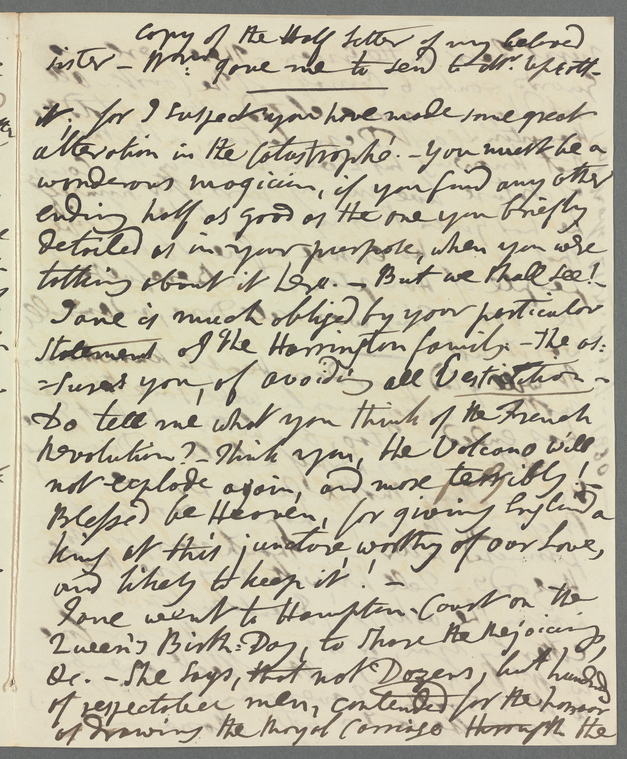 Copy of the Half Letter of my beloved
sister – gave me to send to Mr.
it, for I suspect you have made some great
alteration in the Catastrophé. – You must be a
wonderous magician, if you find any other
ending half as good as the one you briefly
detailed as in your purpose, when you were
talking about it here. – But we shall see! –
Jane is much obliged by your particular
statement of the Harrington family – She as:
=sures you, of avoiding all –
Do tell me what you think of the French
Revolution? – Think you, the Volcano will
not explode again, and more terribly!
Blessed be Heaven, for giving England a
king at this juncture, worthy of our Love,
and likely to keep it! –
Jane went to Hampton-Court on the
Queen's Birth:Day, to share the Rejoicing,
&c. – She says, that not Dozens, but hundreds
of respectable men, contended for the honour
of drawing the Royal Carriage through the